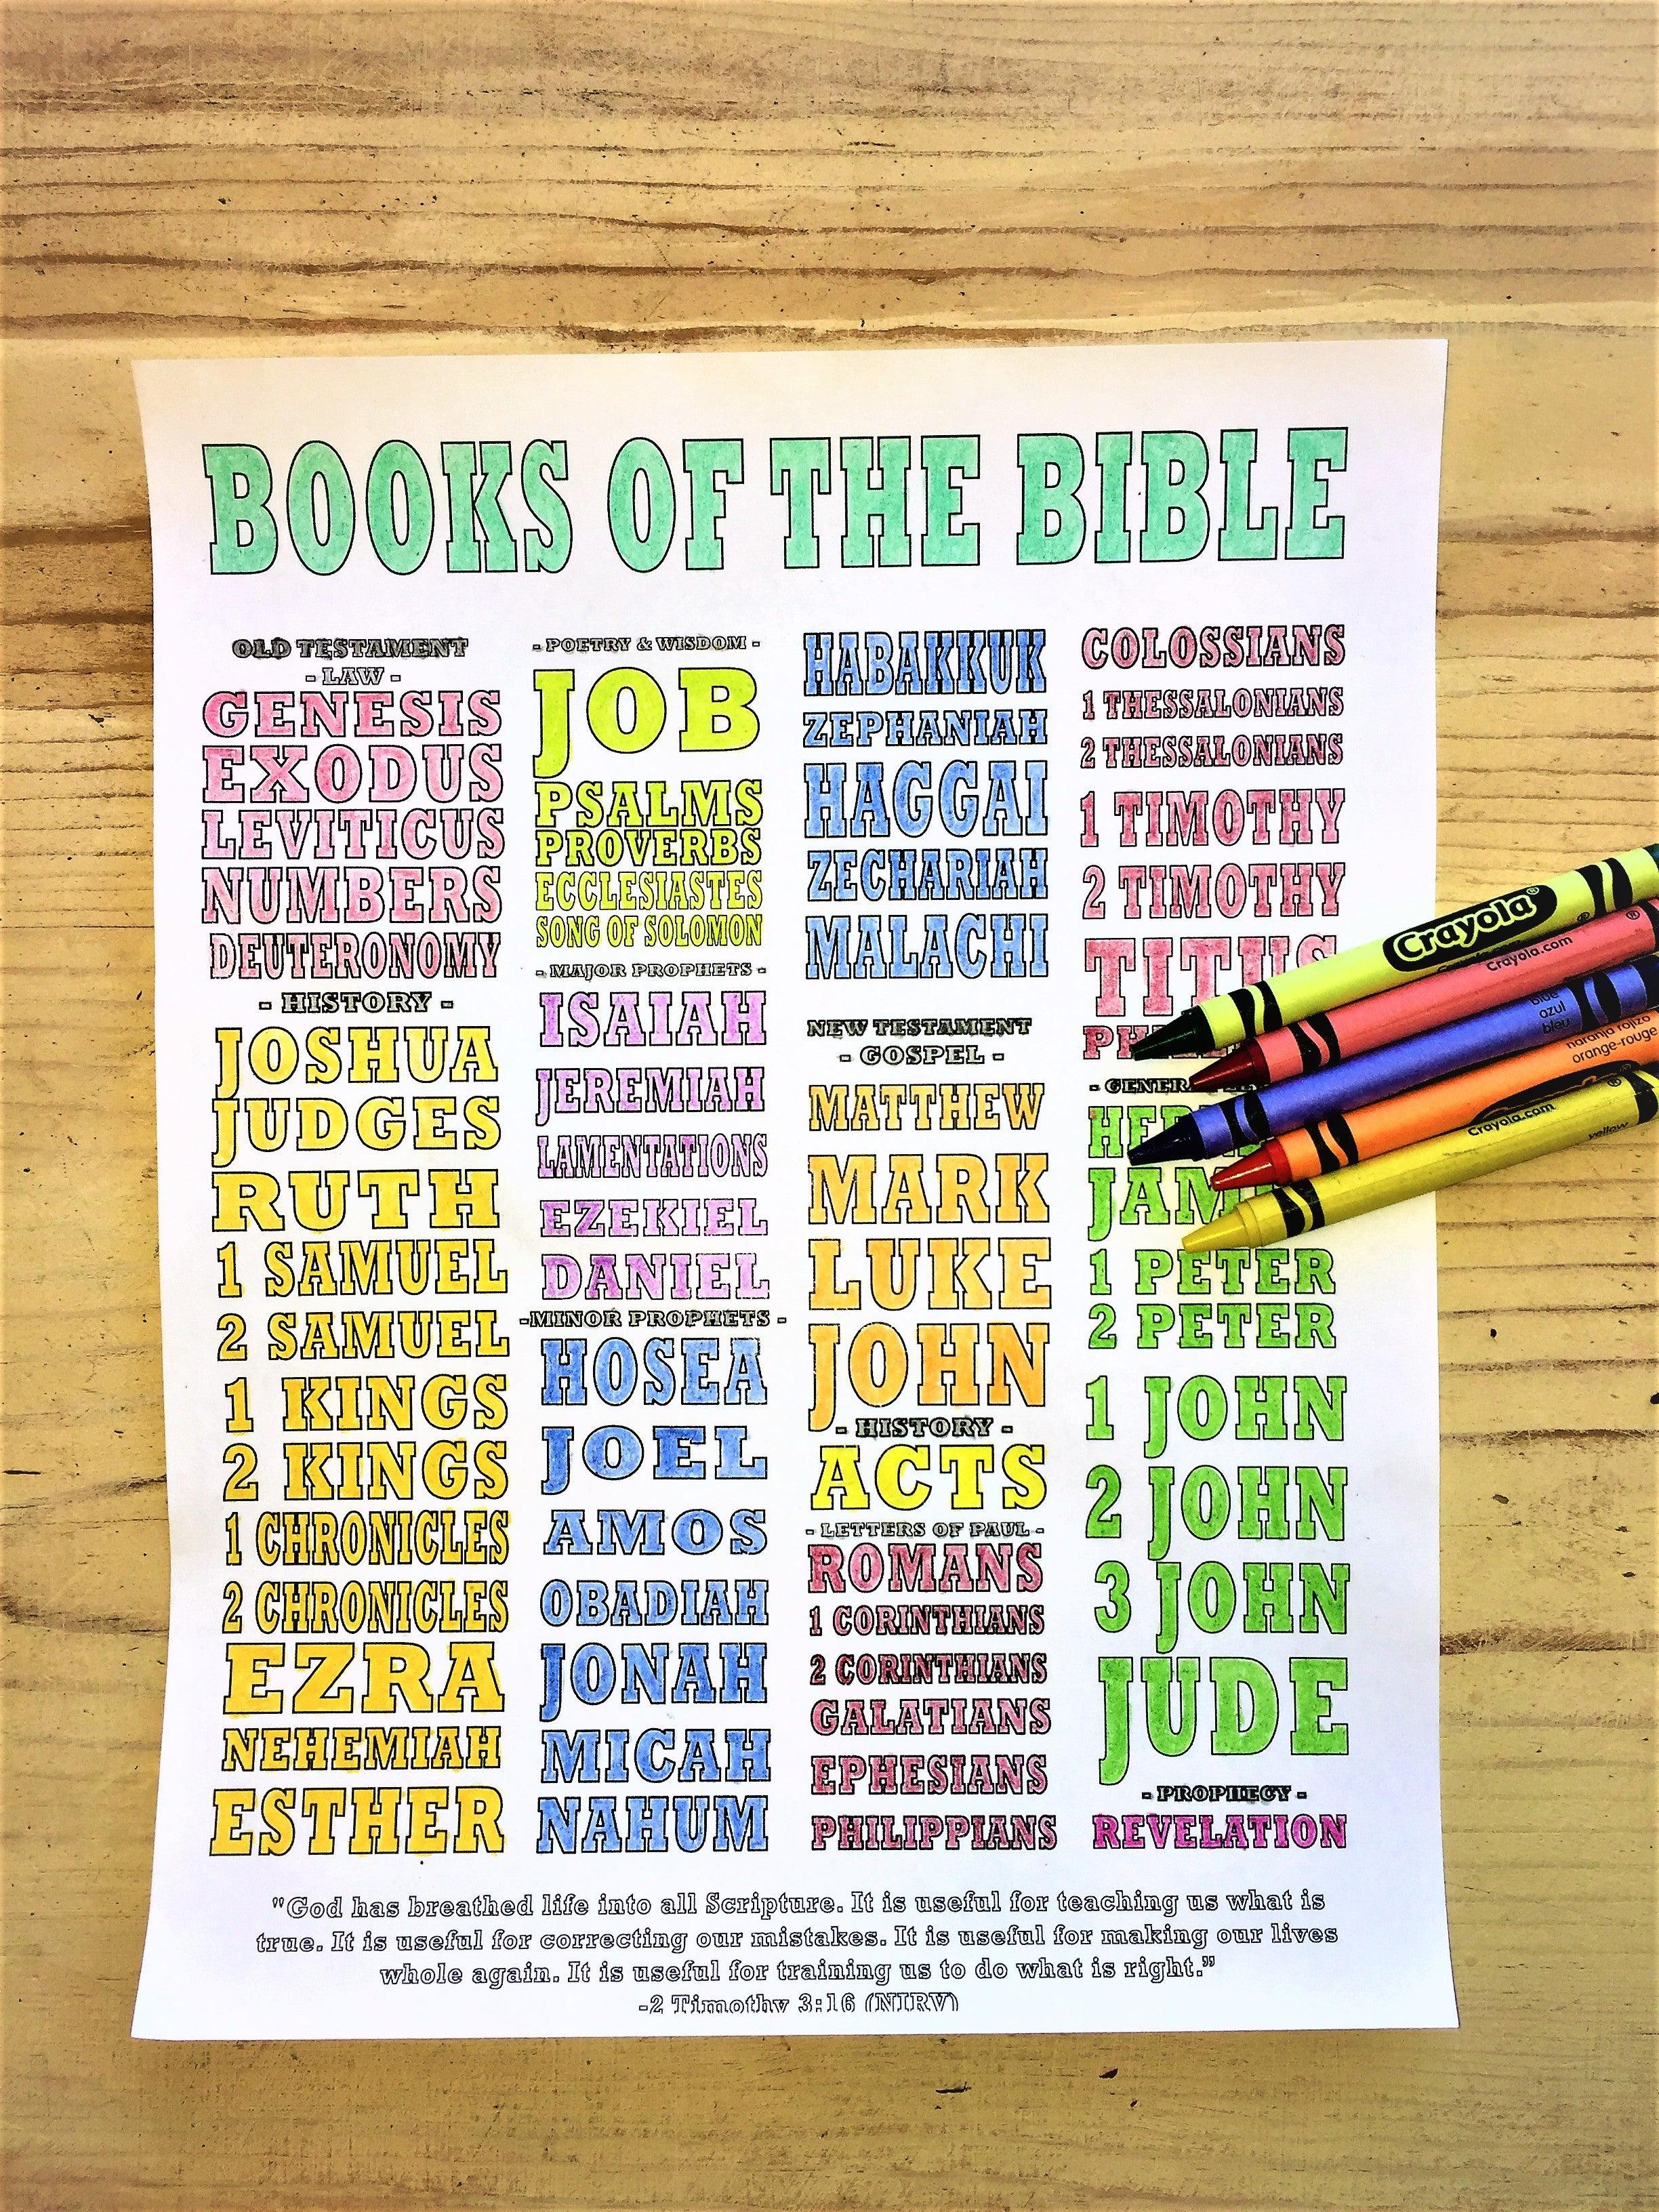 BOOKS OF THE BIBLE
OLD TESTAMENT
- LAW -
GENESIS
EXODUS
LEVITICUS
NUMBERS
DEUTERONOMY
- HISTORY -
JOSHUA
JUDGES
RUTH
1 SAMUEL
2 SAMUEL
1 KINGS
2 KINGS
1 CHRONICLES
2 CHRONICLES
EZRA
NEHEMIAH
ESTHER
- POETRY & WISDOM -
JOB
PSALMS
PROVERBS
ECCLESIASTES
SONG OF SOLOMON
- MAJOR PROPHETS -
ISAIAH
JEREMIAH
LAMENTATIONS
EZEKIEL
DANIEL
-MINOR PROPHETS -
HOSEA
JOEL
AMOS
OBADIAH
JONAH
MICAH
NAHUM
HABAKKUK
ZEPHANIAH
HAGGAI
ZECHARIAH
MALACHI
NEW TESTAMENT
- GOSPEL -
MATTHEW
MARK
LUKE
JOHN
- HISTORY -
ACTS
- LETTERS OF PAUL -
ROMANS
1 CORINTHIANS
2 CORINTHIANS
GALATIANS
EPHESIANS
PHILIPPIANS
COLOSSIANS
1 THESSALONIANS
2 THESSALONIANS
1 TIMOTHY
2 TIMOTHY
TITUS
1 PETER
2 PETER
1 JOHN
2 JOHN
3 JOHN
JUDE
- PROPHECY -
REVELATION
Crayola®
Crayola.com
blue
azul
bleu
naranja rojizo
orange-rouge
Crayola.com
yellow
"God has breathed life into all Scripture. It is useful for teaching us what is
true. It is useful for correcting our mistakes. It is useful for making our lives
whole again. It is useful for training us to do what is right.”
-2 Timothy 3:16 (NIRV)